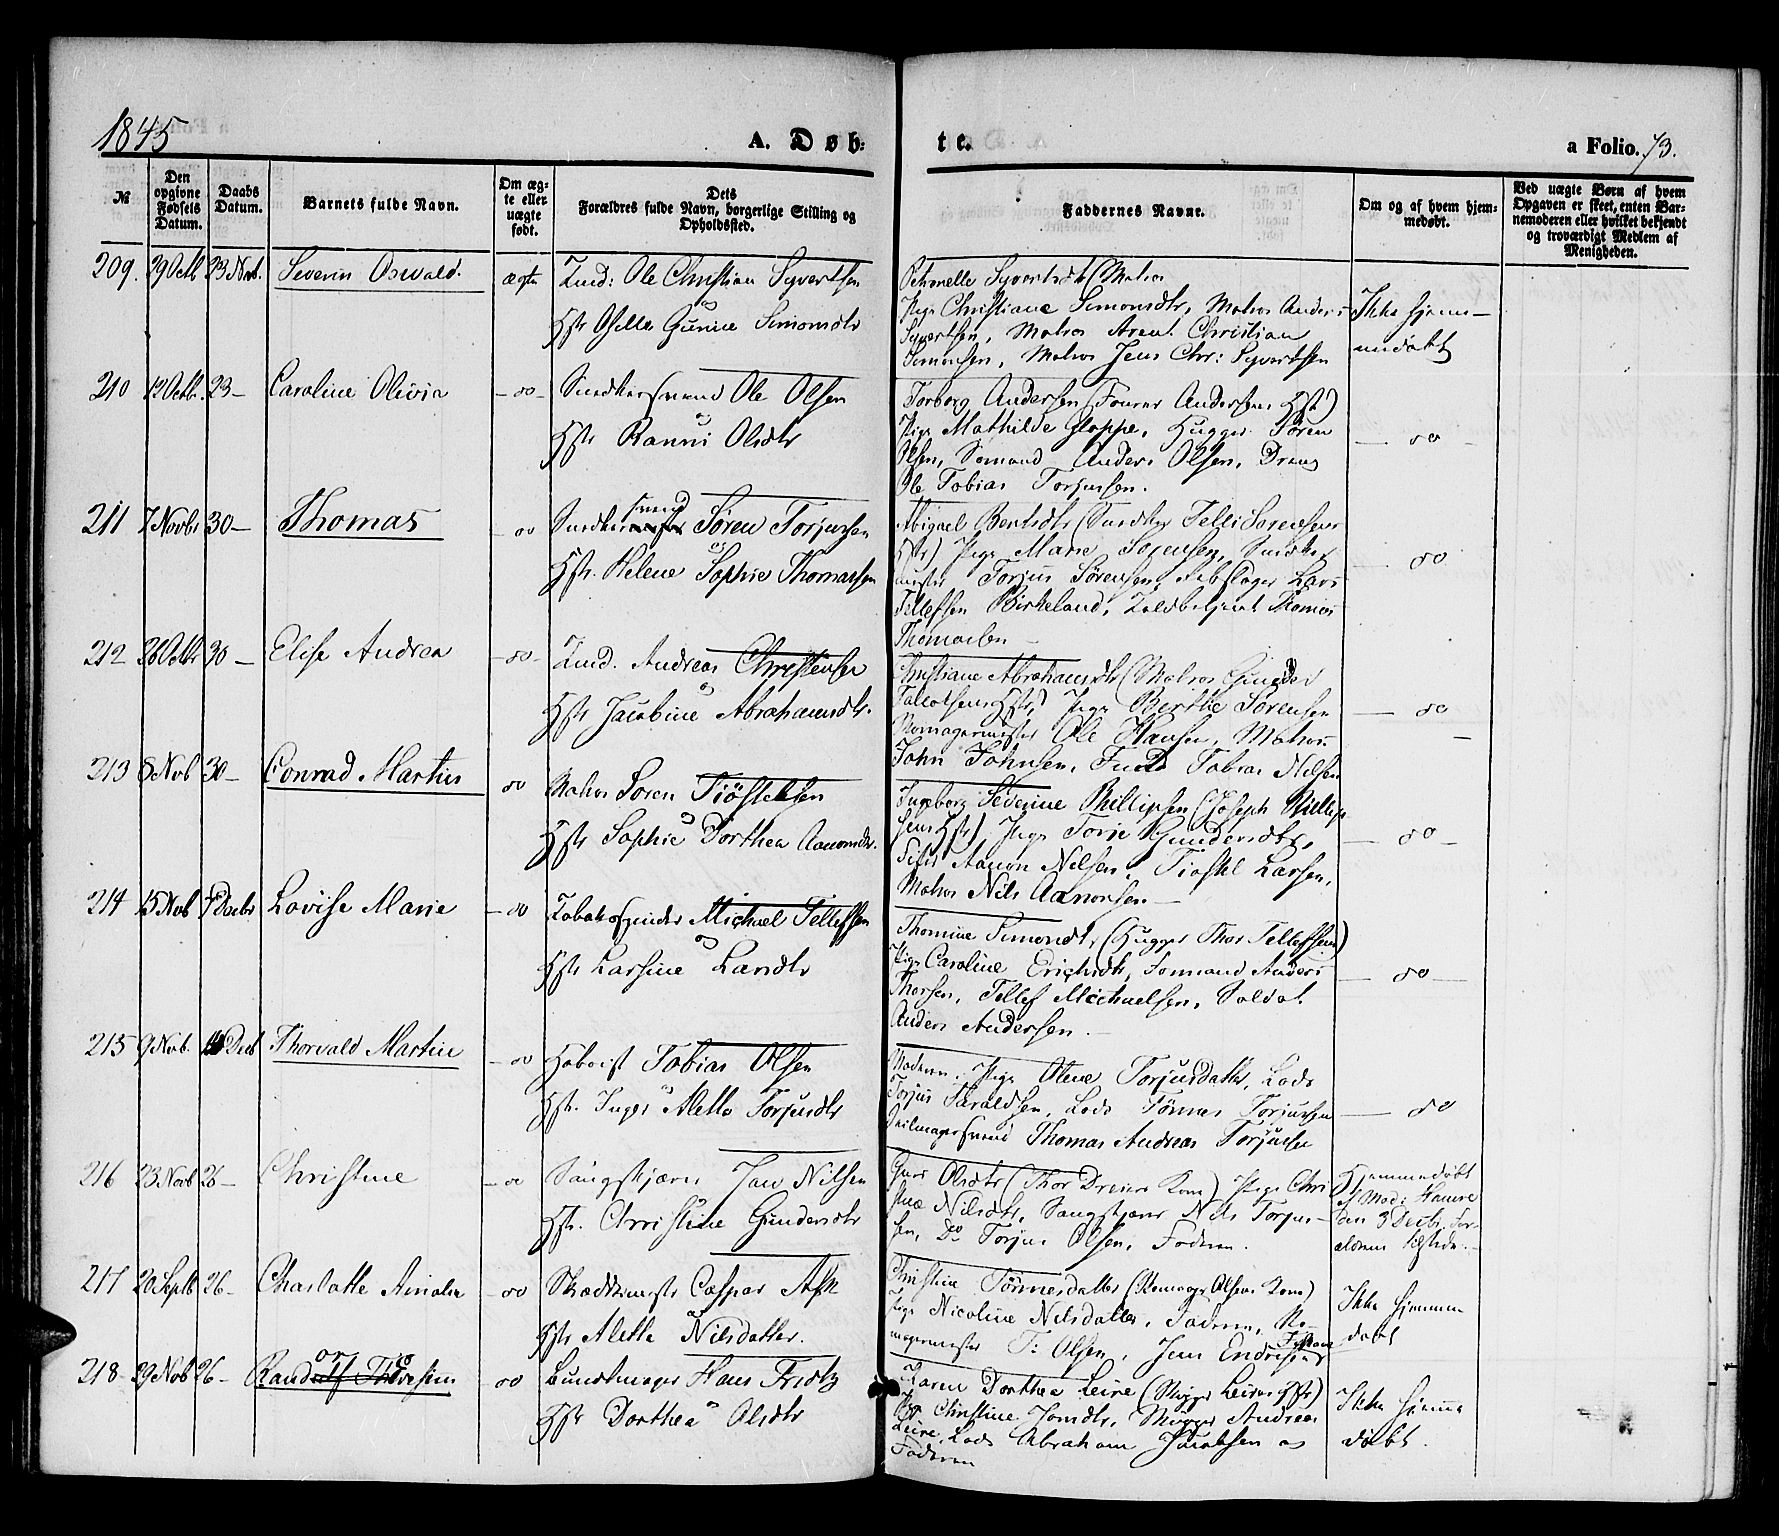 1845
A. Døb:
te.
a Folio. 73.
№
Den opgivne Fødsels Datum.
Daabs Datum.
Barnets fulde Navn.
Om ægte eller uægte født.
Dets Forældres fulde Navn, borgerlige Stilling og Opholdssted.
Faddernes Navne.
Om og af hvem hjemmedøbt.
Ved uægte Børn af hvem Opgaven er skeet, enten Barnemoderen eller hvilket bekjendt og troværdigt Medlem af Menigheden.
209. 29 Octb 23 Nov. Severin Oswald. ægte Ole Christian Syvertsen
Hstr Gunine Simonsdtr
Petronelle Syvertsdtr (Matros
Pige Christiane Simonsdtr, Matros Anders
Syvertsen, Matros Arent Christian
Simonsen, Matros Jens Chr: Syvertsen
Ikke hjemmedøbt
210 12 Octb. 23 – Caroline Olivia – do – Snedkersvend Ole Olsen
Hstr Ranni Olsdtr
Torborg Andersen (Andersens Hstr)
Pige Mathilde Gloppe, Hugger Søren
Olsen, Sømand Anders Olsen, Dreng
Ole Tobias Torjussen.
– do –
211 7 Novbr 30 – Thomas – do Snedkersvend Søren Torjussen
Hstr. Helene Sophie Thomassen
Abigael Berntsdtr (Snedker Tellef Sørensens
Hstr) Pige Marie Sørensen, Snedker
mester Torjus Sørensen, Rebslager Lars
Tellefsen Birkeland, Toldbetjent Thomas
Thomassen –
– do
212 26 Octbr 30 – Elise Andrea – do – Andreas Christensen
Hstr Jacobine Abrahamsdtr.
Christiane Abrahamsdtr (Matros Gunder
Hstr) Pige Birthe Sørensen
Ole Hansen, Matros
John Johnsen, Tobias Nilsen
– do –
213 8 Nov 30 – Conrad Martin do Matros Søren Tiøstelsen
Hstr Sophie Dorthea Aanonsdtr.
Ingeborg Severine Phillipsen (Joseph Phillip
sens Hstr), Pige Torje Gundersdtr,
Aanon Nilsen, Tiøstel Larsen,
Matros Nils Aanonsen. –
– do –
214 15 Nov 7 Decbr Lovise Marie – do Tobakspinder Michael Tellefsen
Hstr Larsine Larsdtr
Thomine Simonsdtr, (Hugger Thor Tellefsen)
Pige Caroline Erichsdtr, Sømand Anders
Thorsen, Tellef Michaelsen, Soldat
Anders Andersen. –
– do –
215 9 Nov. 14 Decb Thorvald Martin – do Hoboist Tobias Olsen
Hstr. Inger Alette Torjusdtr
Moderen. Pige Olene Torjusdatter, Lods
Torjus Taraldsen, Lods Tønnes Torjussen
Seilmagersvend Thomas Andreas Torjussen
– do
216 23 Novb 26 – Christine – do Jens Nilsen
Hstr. Christine Gundersdtr
Olsdtr (Thor Dreiers Kone) Pige Chri
stine Nilsdtr, Nils Torjus–
sen, Do Torjus Olsen, Faderen.
Hjemmedøbt
af Mad: Hamre
den 3 Decbr, For–
ældrene tilstede. –
217 20 Septb 26 – Charlotte Amalia – do Skræddermester Casper Ask
Hstr Alette Nilsdatter.
Christine Tønnesdatter (Olsens Kone)
Pige Nicoline Nilsdatter, Faderen, Re–
magermester T: Olsen, Jens Endresen
Ikke hjemme
døbt
218 – 29 Nov 26 – Randor Theresine do Buntmager Hans Fridtz
Hstr Dorthea Olsdtr
Karen Dorthea Leire (Skipper Leires Hstr)
Pige Christine Jonsdtr, Skipper Andreas
Leire, Lods Abraham Jacobsen og
Faderen
Ikke hjemme
døbt.